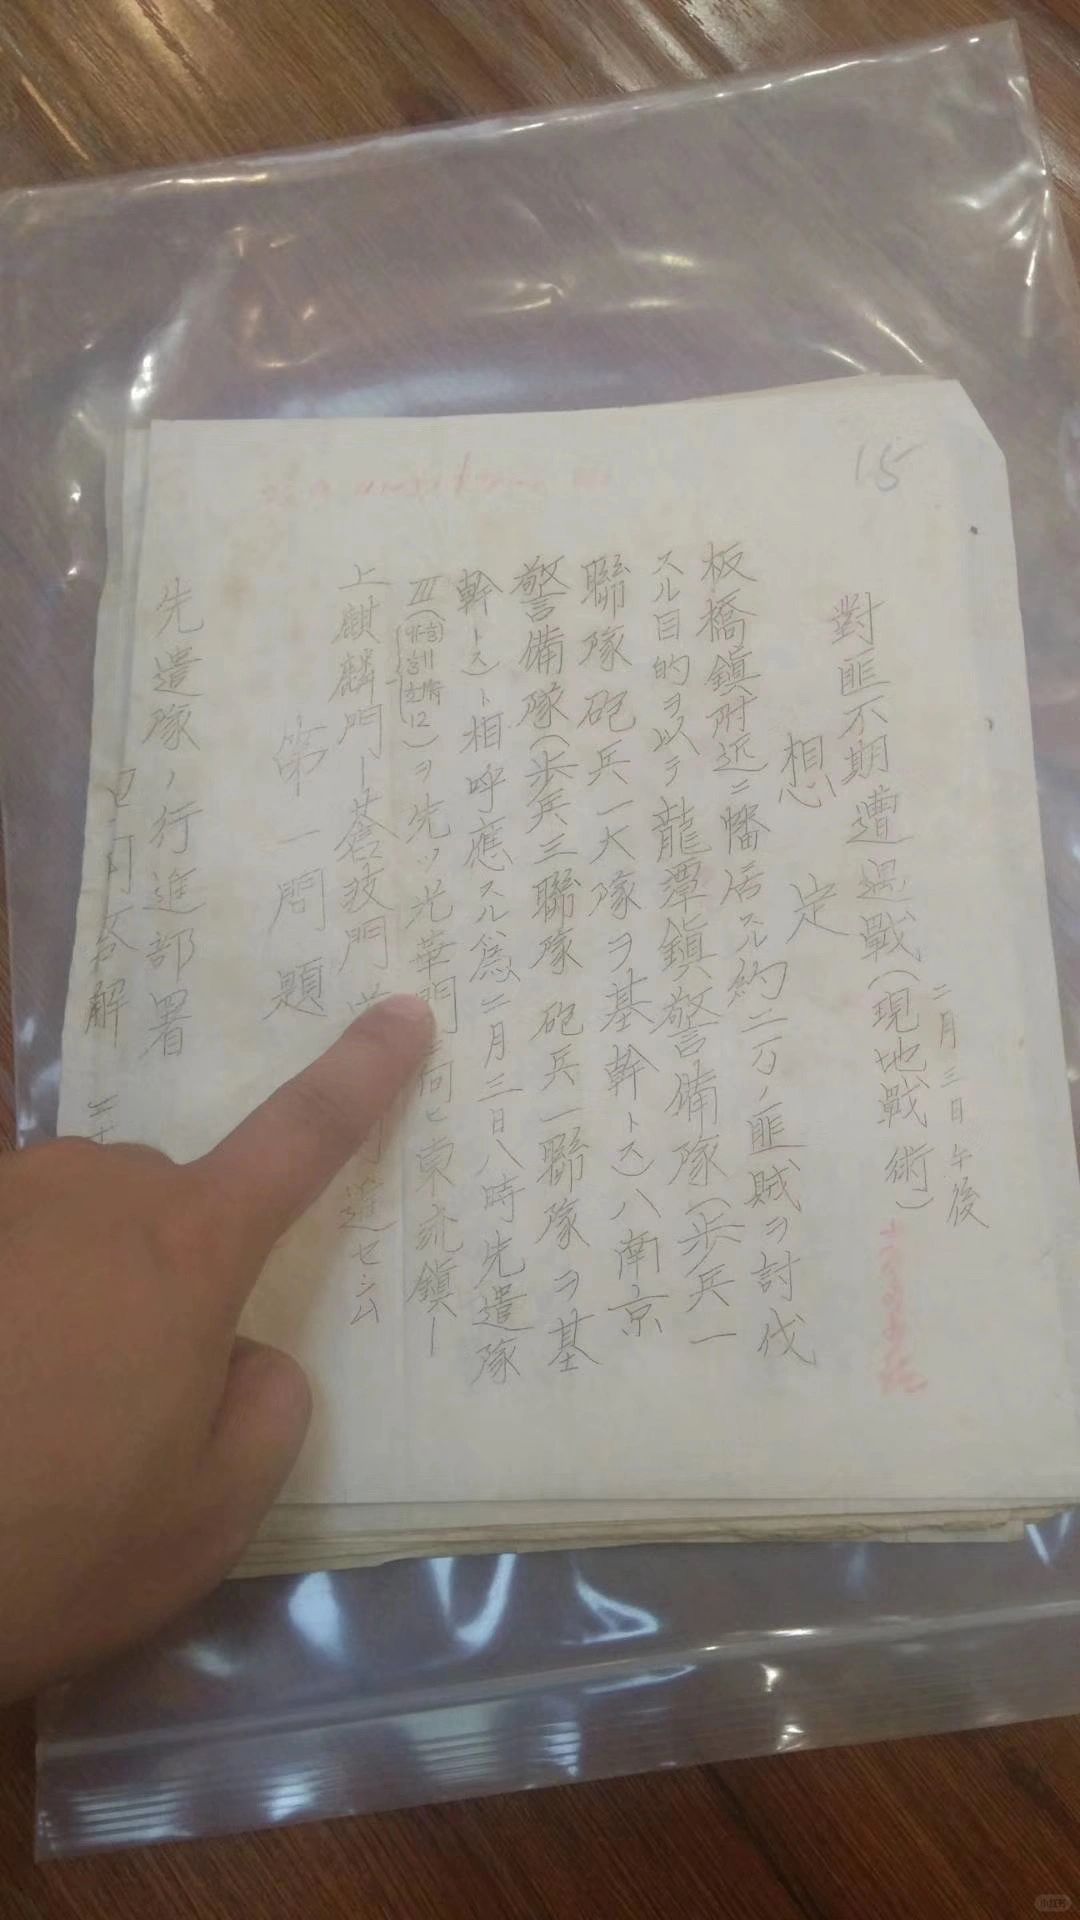 15
二月三日午後
對匪不期遭遇戰(現地戰術)
想定
板橋鎭附近ニ蟠居スル約二万ノ匪賊ヲ討伐
スル目的ヲ以テ龍潭鎭警備隊(歩兵一
聯隊砲兵一大隊ヲ基幹トス)ハ南京
警備隊(歩兵三聯隊砲兵一聯隊ヲ基
幹トス)ト相呼應スル爲二月三日八時先遣隊
III( 12)ヲ先ツ光華門ニ向ヒ東流鎭ー
上麒麟門ー 門 進セシム
第一問題
先遣隊ノ行進部署
解
小红书